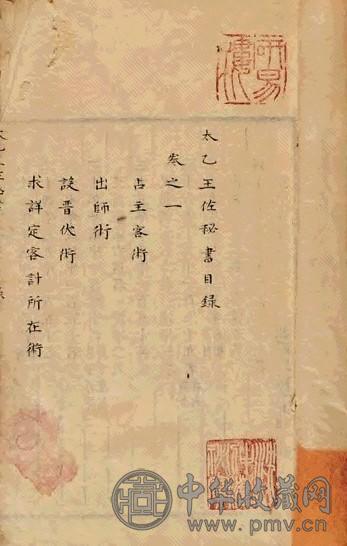 太乙王佐秘書目錄
卷之一
占主客術
出師術
設晋伏術
求詳定客計所在術
中华收藏网
www.pmv.cn